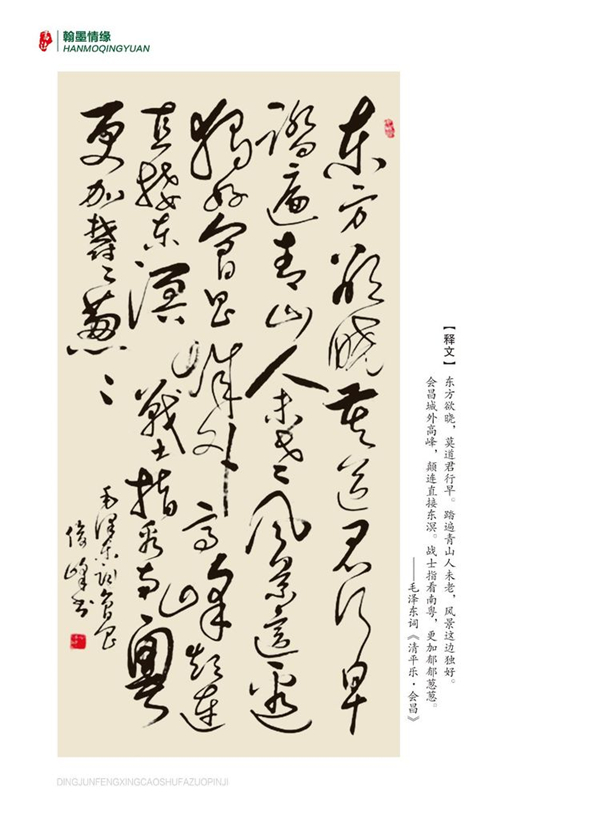 翰墨情缘
HANMOQINGYUAN
东方欲晓莫道君行早
踏遍青山人未老风景这边
独好会昌城外高峰颠连
直接东溟战士指看南粤
更加郁々葱々
毛泽东词会昌
俊峰书
【释文】
东方欲晓，莫道君行早。踏遍青山人未老，风景这边独好。
会昌城外高峰，颠连直接东溟。战士指看南粤，更加郁郁葱葱。
——毛泽东词《清平乐·会昌》
DINGJUNFENGXINGCAOSHUFAZUOPINJI